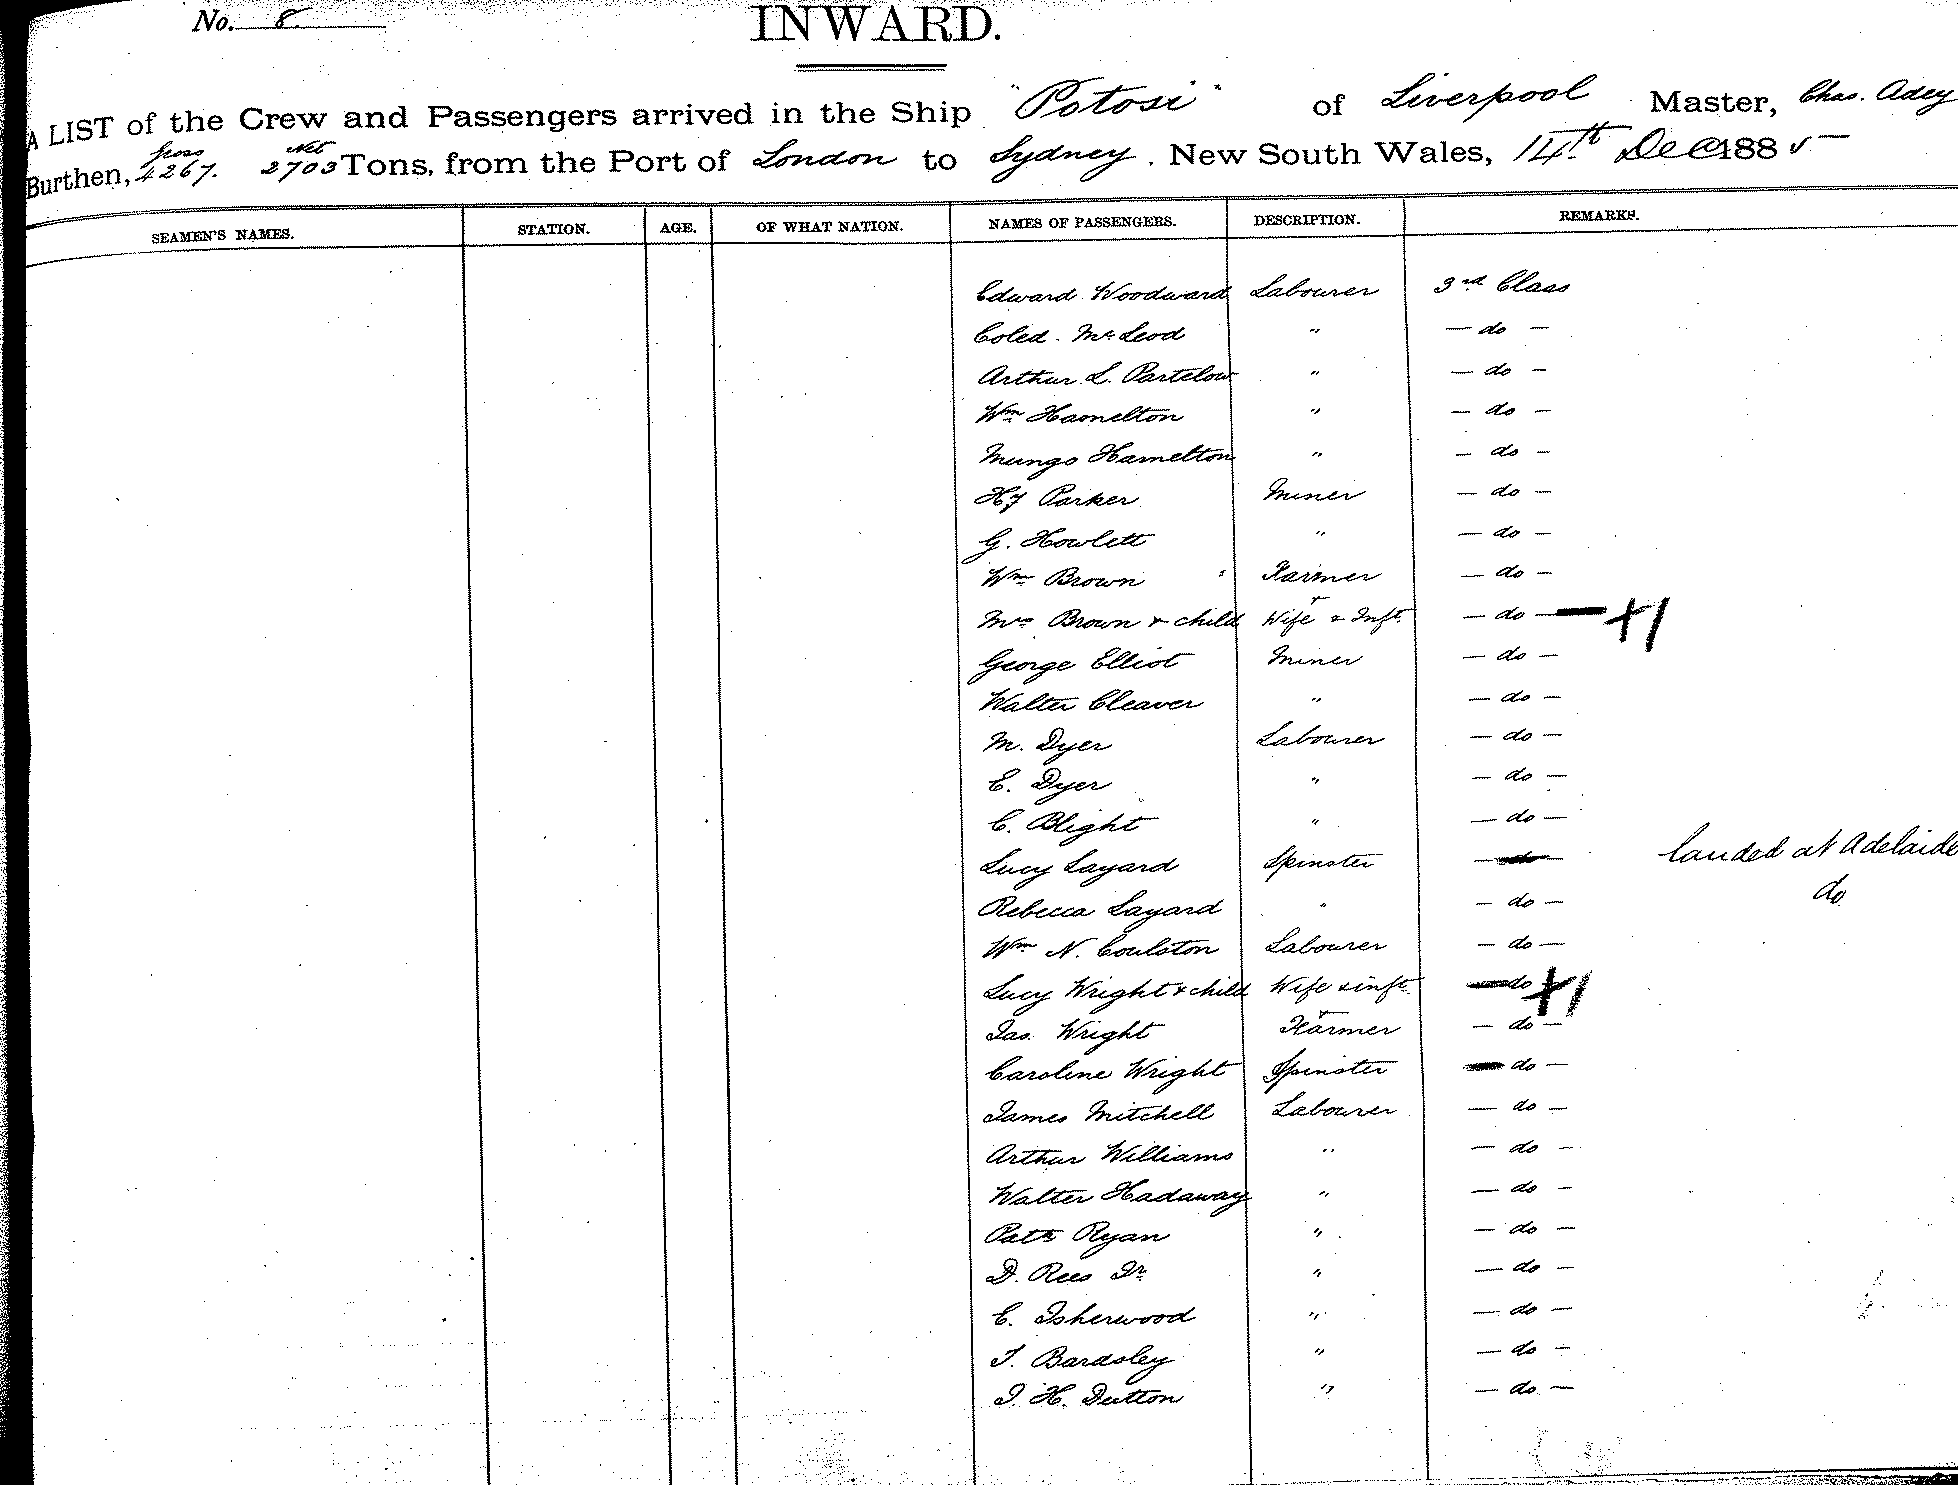 No. 8
INWARD.
A LIST of the Crew and Passengers arrived in the Ship "Potosi" of Liverpool Master, Chas. Adey
Burthen, Gross 4267. Net 2703 Tons, from the Port of London to Sydney, New South Wales, 14th Dec 1885
SEAMEN'S NAMES. STATION. AGE. OF WHAT NATION. NAMES OF PASSENGERS. DESCRIPTION. REMARKS.
Edward Woodward Labourer 3rd Class
Coled. McLeod " — do —
Arthur L. Partelow " — do —
Wm Hamelton " — do —
Mungo Hamelton " — do —
Hy Parker Miner — do —
G. Howlett " — do —
Wm Brown Farmer — do —
Mrs Brown & child Wife & Inft. — do — +1
George Elliot Miner — do —
Walter Cleaver " — do —
M. Dyer Labourer — do —
E. Dyer " — do —
C. Blight " — do —
Lucy Layard Spinster — do — landed at Adelaide
Rebecca Layard " — do — do
Wm N. Coulston Labourer — do —
Lucy Wright & child Wife & inft. — do +1
Jas. Wright Farmer — do —
Caroline Wright Spinster — do —
James Mitchell Labourer — do —
Arthur Williams " — do —
Walter Hadaway " — do —
Patk Ryan " — do —
D. Rees Jr. " — do —
C. Isherwood " — do —
T. Bardsley " — do —
J. H. Dutton " — do —